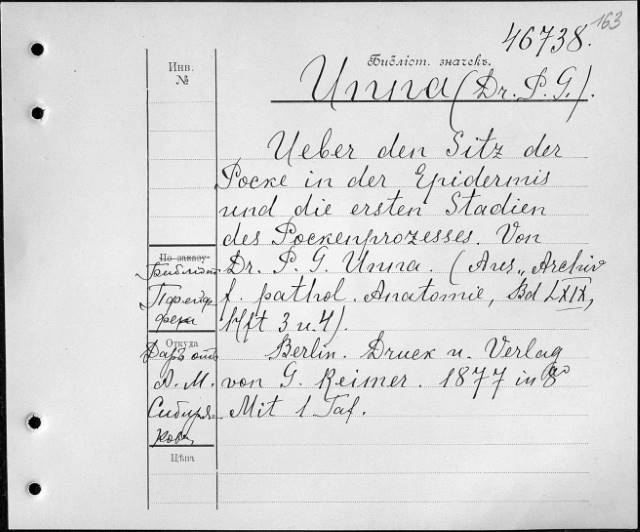 163
46738.
Инв.
№
Библіот. значекъ.
Unna (Dr. P. G.).
Ueber den Sitz der
Pocke in der Epidermis
und die ersten Stadien
des Pockenprozesses. Von
Dr. P. G. Unna. (Aus „Archiv
f. pathol. Anatomie, Bd LXIX,
Hft 3 u. 4).
Berlin. Druck u. Verlag
von G. Reimer. 1877 in 8°
Mit 1 Taf.
По заказу
Библіот
Пфейф
фера
Откуда
Даръ отъ
А. М.
Сибиря-
кова
Цѣна